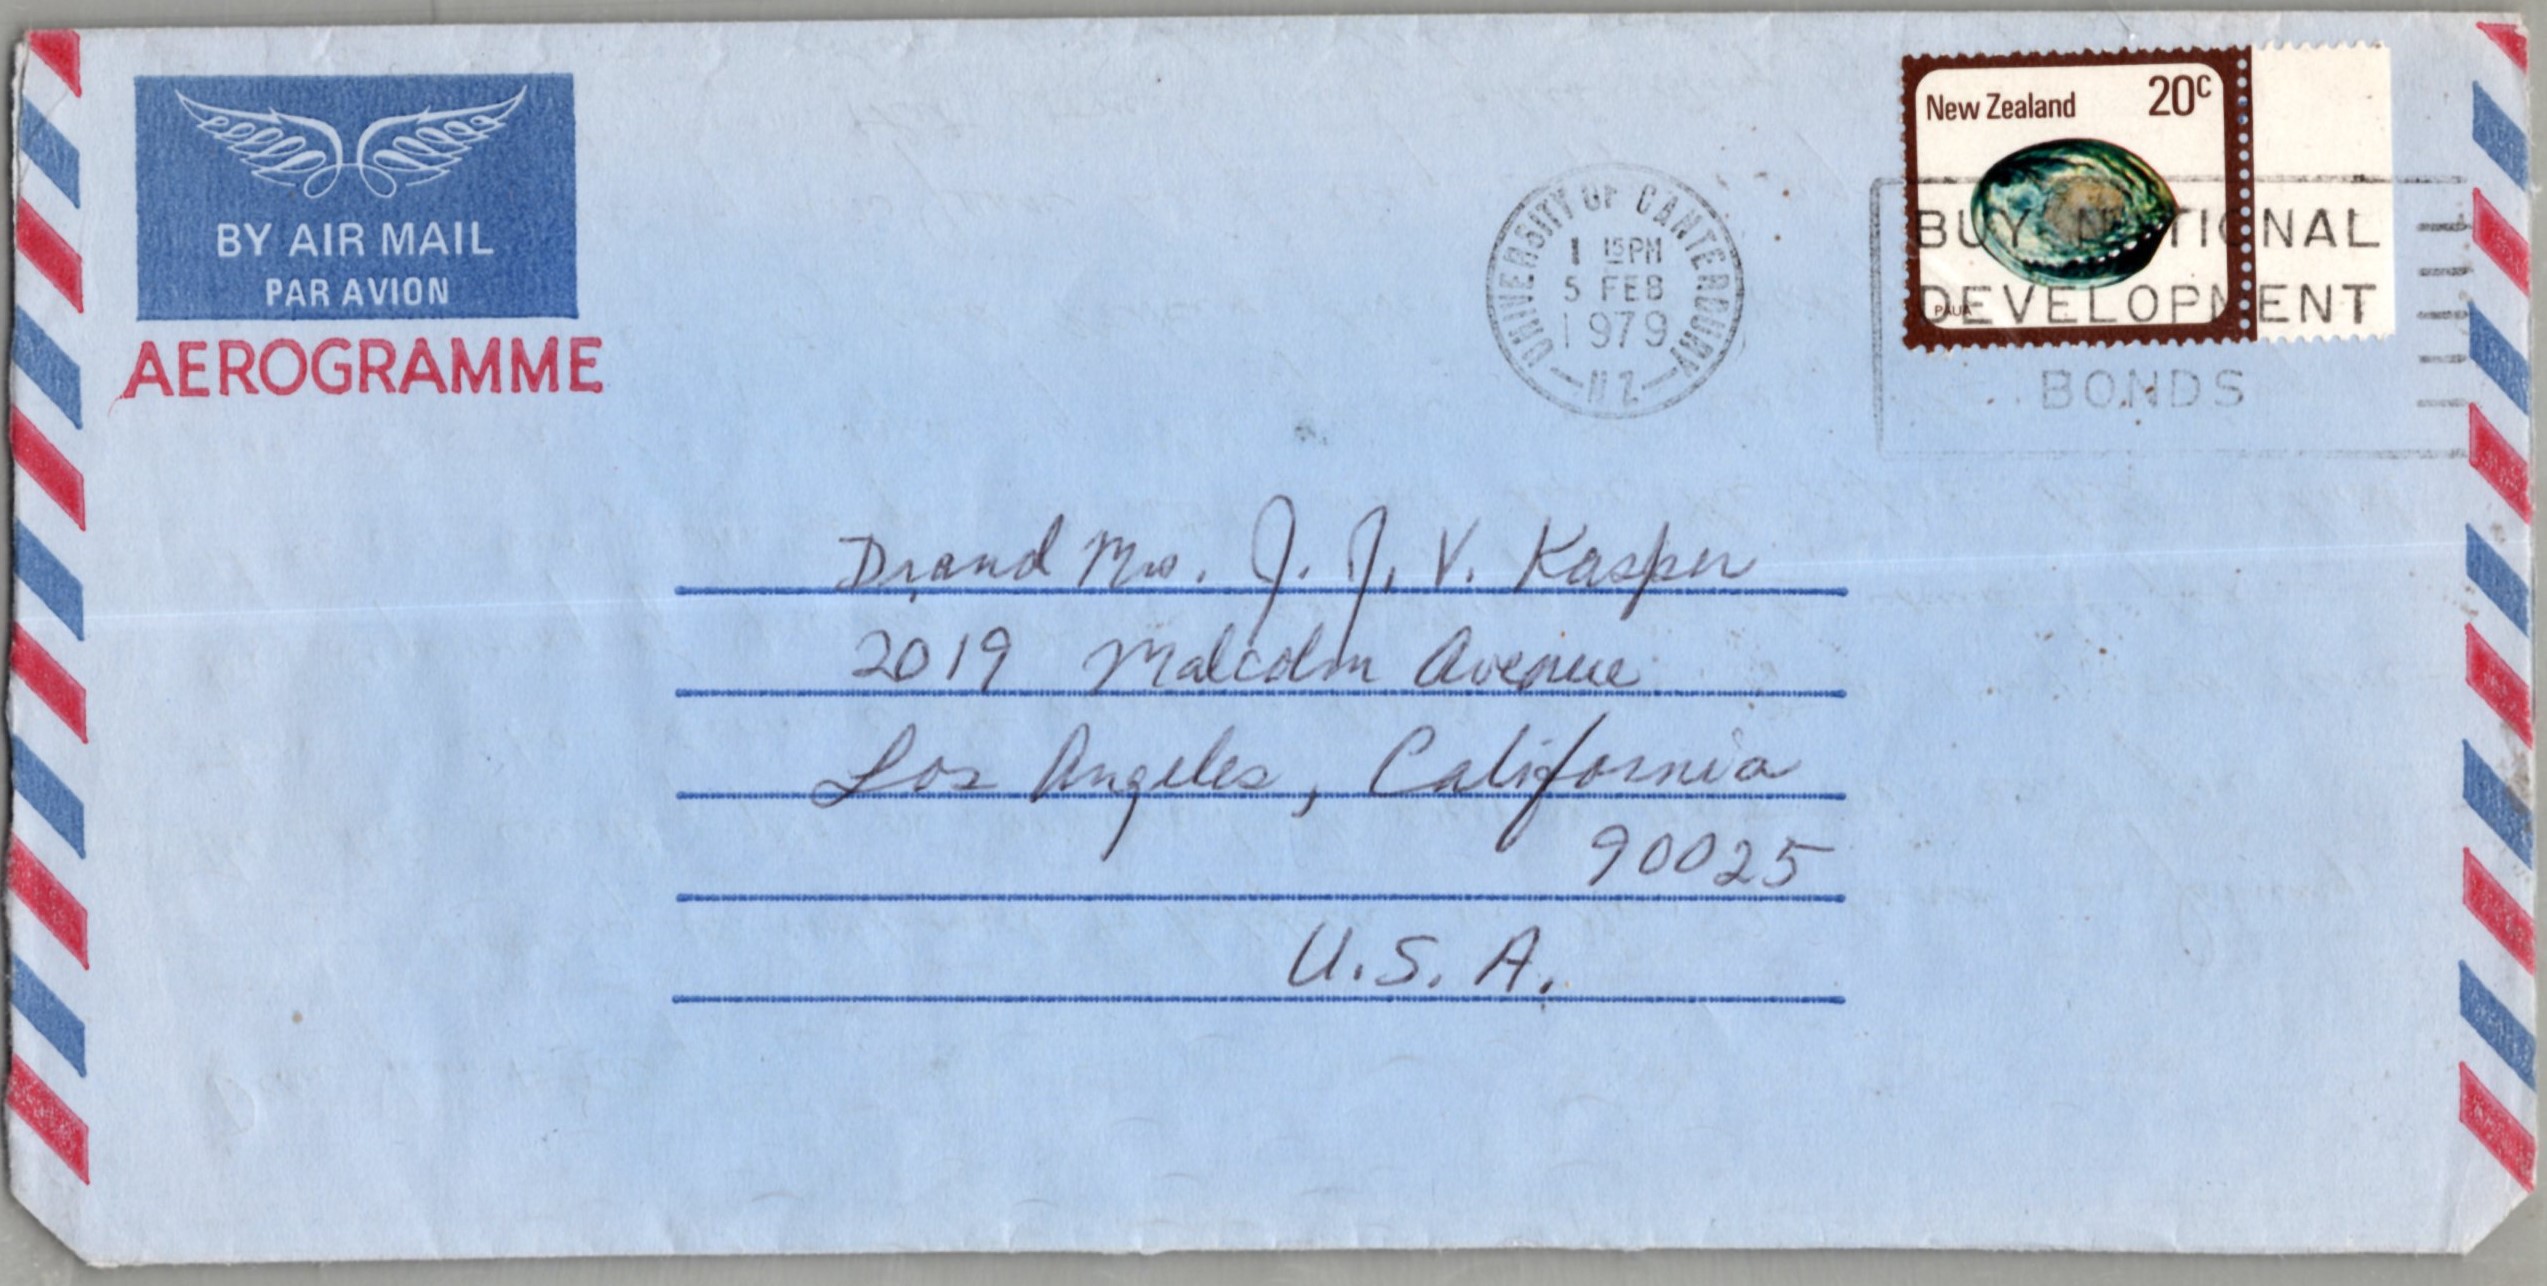 BY AIR MAIL
PAR AVION
AEROGRAMME
UNIVERSITY OF CANTERBURY
1 15PM
5 FEB
1979
N Z
New Zealand 20c
PAUA
BUY NATIONAL
DEVELOPMENT
BONDS
Dr and Mrs. J. J. V. Kasper
2019 Malcolm Avenue
Los Angeles, California
90025
U.S.A.